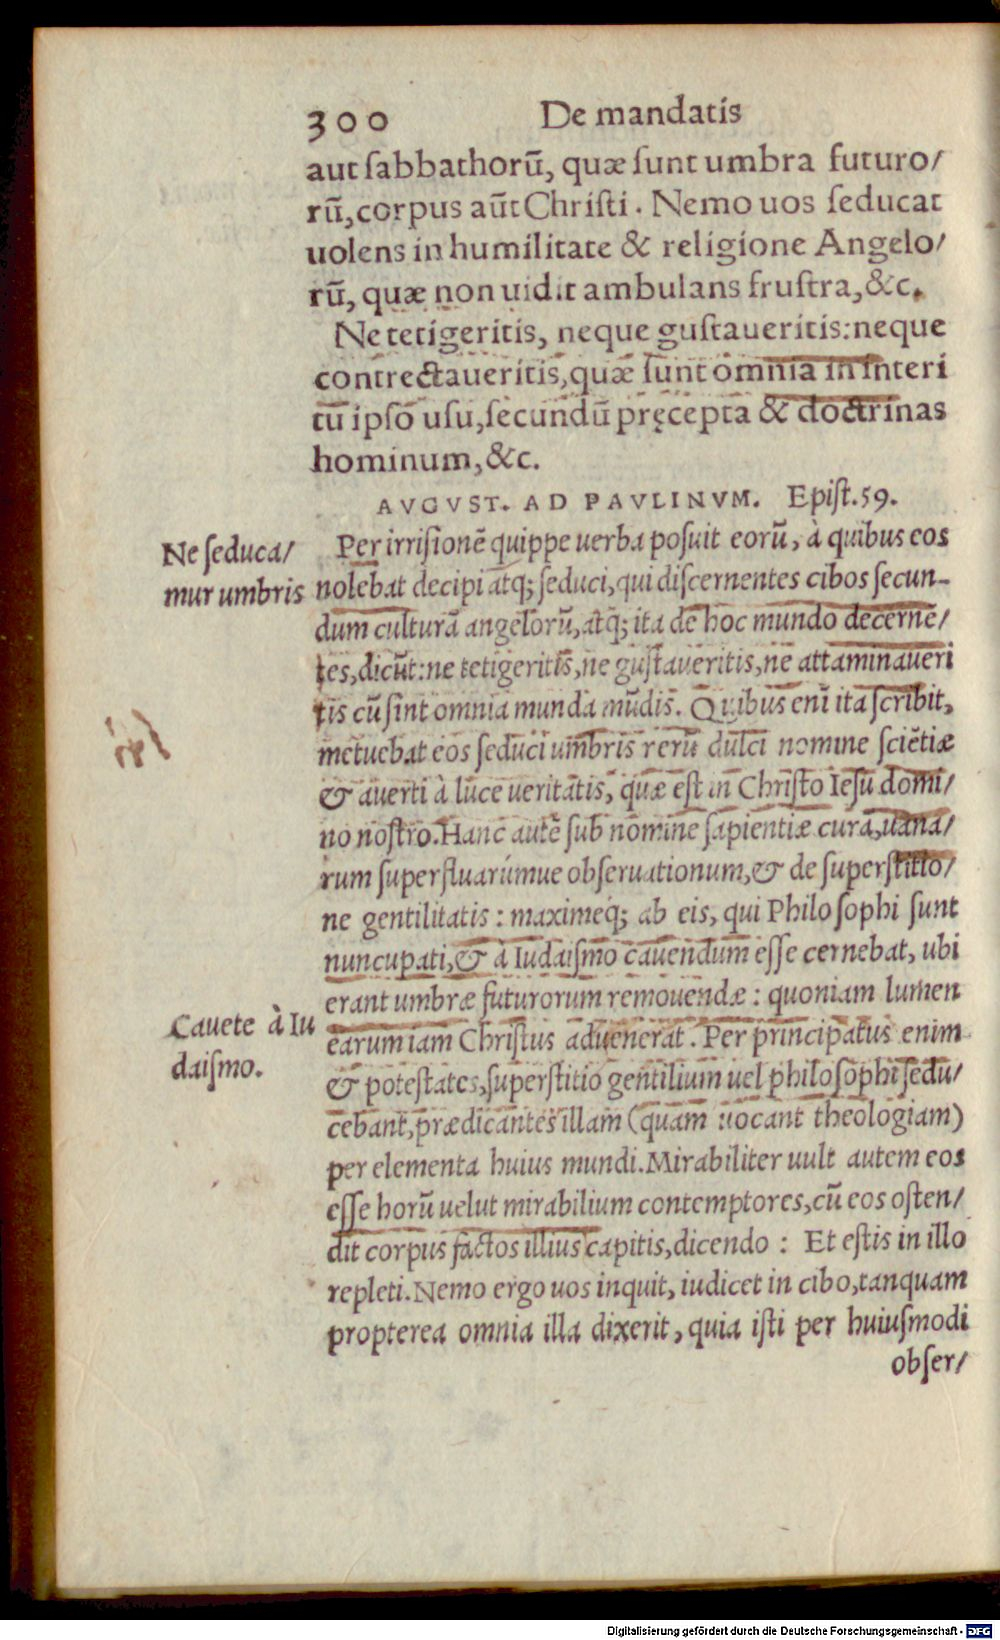 300 De mandatis
aut sabbathorū, quæ sunt umbra futuro/
rū, corpus aūt Christi. Nemo uos seducat
uolens in humilitate & religione Angelo/
rū, quæ non uidit ambulans frustra, &c.
Ne tetigeritis, neque gustaueritis: neque
contrectaueritis, quæ sunt omnia in interi
tū ipso usu, secundū pręcepta & doctrinas
hominum, &c.
AVGVST. AD PAVLINVM. Epist. 59.
Ne seduca/
mur umbris
Per irrisionē quippe uerba posuit eorū, à quibus eos
nolebat decipi atq; seduci, qui discernentes cibos secun-
dum culturā angelorū, atq; ita de hoc mundo decernē/
tes, dicūt: ne tetigeritis, ne gustaveritis, ne attaminaueri
tis cū sint omnia munda mūdis. Quibus enī ita scribit,
metuebat eos seduci umbris rerū dulci nomine sciētiæ
& averti à luce veritatis, quæ est in Christo Iesu domi/
no nostro. Hanc autē sub nomine sapientiæ curā, uana/
rum superfluarúmue obseruationum, & de superstitio/
ne gentilitatis: maximeq; ab eis, qui Philosophi sunt
nuncupati, & à Iudaismo cauendum esse cernebat, ubi
erant umbræ futurorum remouendæ: quoniam lumen
Cauete à Iu
daismo.
earum iam Christus aduenerat. Per principatus enim
& potestates, superstitio gentilium uel philosophi sedu/
cebant, prædicantes illam (quam uocant theologiam)
per elementa huius mundi. Mirabiliter uult autem eos
esse horū uelut mirabilium contemptores, cū eos osten/
dit corpus factos illius capitis, dicendo: Et estis in illo
repleti. Nemo ergo uos inquit, iudicet in cibo, tanquam
propterea omnia illa dixerit, quia isti per huiusmodi
obser/
Digitalisierung gefördert durch die Deutsche Forschungsgemeinschaft - DFG